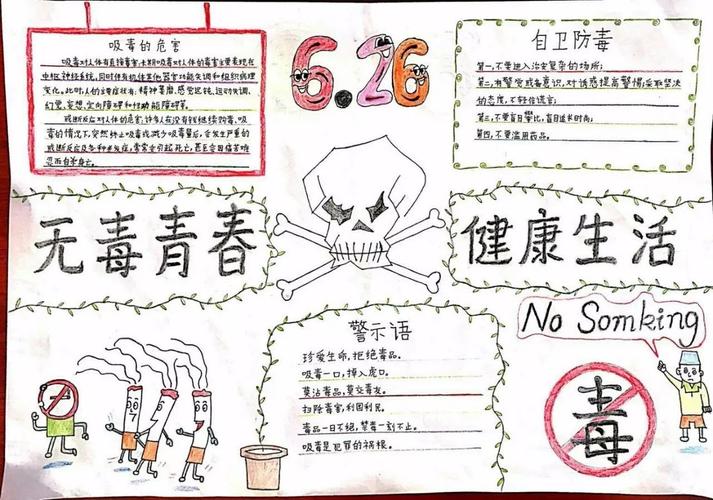 吸毒的危害
吸毒对人体有直接毒害:长期吸毒对人体的毒害主要表现在
中枢神经系统,同时伴有机体其它器官功能失调和组织病理
变化。此时人的主要症状有:精神萎靡、感觉迟钝、运动失调、
幻觉、妄想、定向障碍和行动能障碍等。
戒断反应对人体的危害,许多人在没有钱继续购毒、吸
毒的情况下,突然终止吸毒或减少吸毒量后,会发生严重的
戒断反应及各种并发症,常常会引起死亡,甚至会因痛苦难
忍而自杀身亡。
6.26
自卫防毒
第一,不要进入治安复杂的场所;
第二,有警觉戒备意识,对诱惑提高警惕,采取坚决
的态度,不轻信谎言;
第三,不要盲目攀比,盲目追求时尚;
第四,不要滥用药品。
无毒青春
健康生活
警示语
珍爱生命,拒绝毒品。
吸毒一口,掉入虎口。
莫沾毒品,莫交毒友。
扫除毒害,利国利民。
毒品一日不绝,禁毒一刻不止。
吸毒是犯罪的祸根。
No Somking
毒